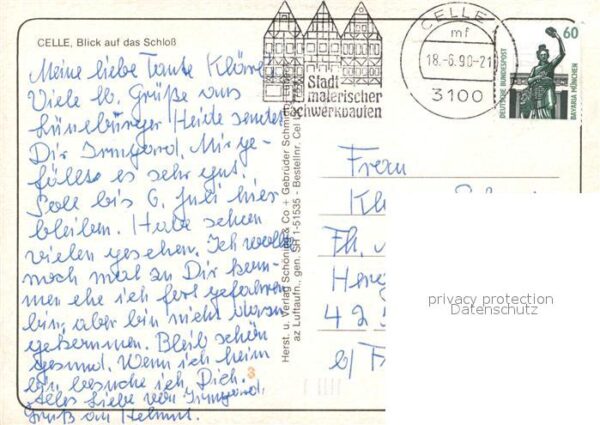 CELLE, Blick auf das Schloß
Meine liebe Tante Kläre
Viele lb. Grüße aus
Lüneburger Heide sendet
Dir Irmgard. Mir ge-
fällts es sehr gut.
Soll bis 6. Juli hier
bleiben. Habe schon
vieles gesehen. Ich wollte
noch mal zu Dir kom-
men ehe ich fort gefahren
bin, aber bin nicht dazu
gekommen. Bleib schön
gesund. Wenn ich heim
bin, besuche ich Dich.
Alles Liebe von Irmgard.
Gruß an Helmut.
Stadt
malerischer
Fachwerkbauten
CELLE
mf
18.-6.90-21
3100
60
DEUTSCHE BUNDESPOST
BAVARIA MÜNCHEN
Herst. u. Verlag Schöning & Co + Gebrüder Schmidt
az Luftaufn., gen. SH 1-51535 - Bestellnr. Cel
3
Frau
Kl
Th.
Her
42
b/ F
privacy protection
Datenschutz